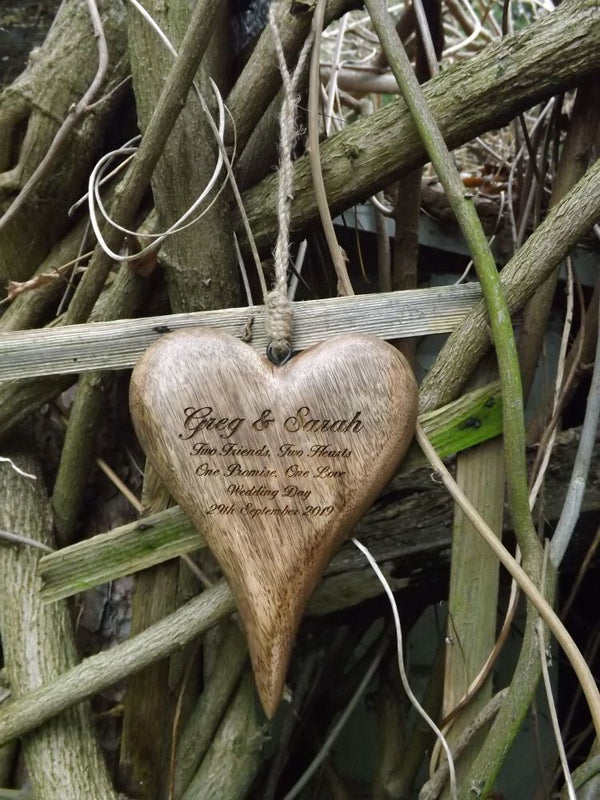 Greg & Sarah
Two Friends, Two Hearts
One Promise, One Love
Wedding Day
29th September 2019